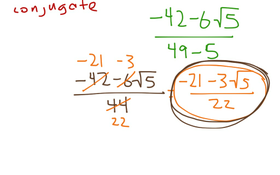 conjugate
-42-6√5
49-5
-21 -3
-42-6√5
44
22
-21-3√5
22